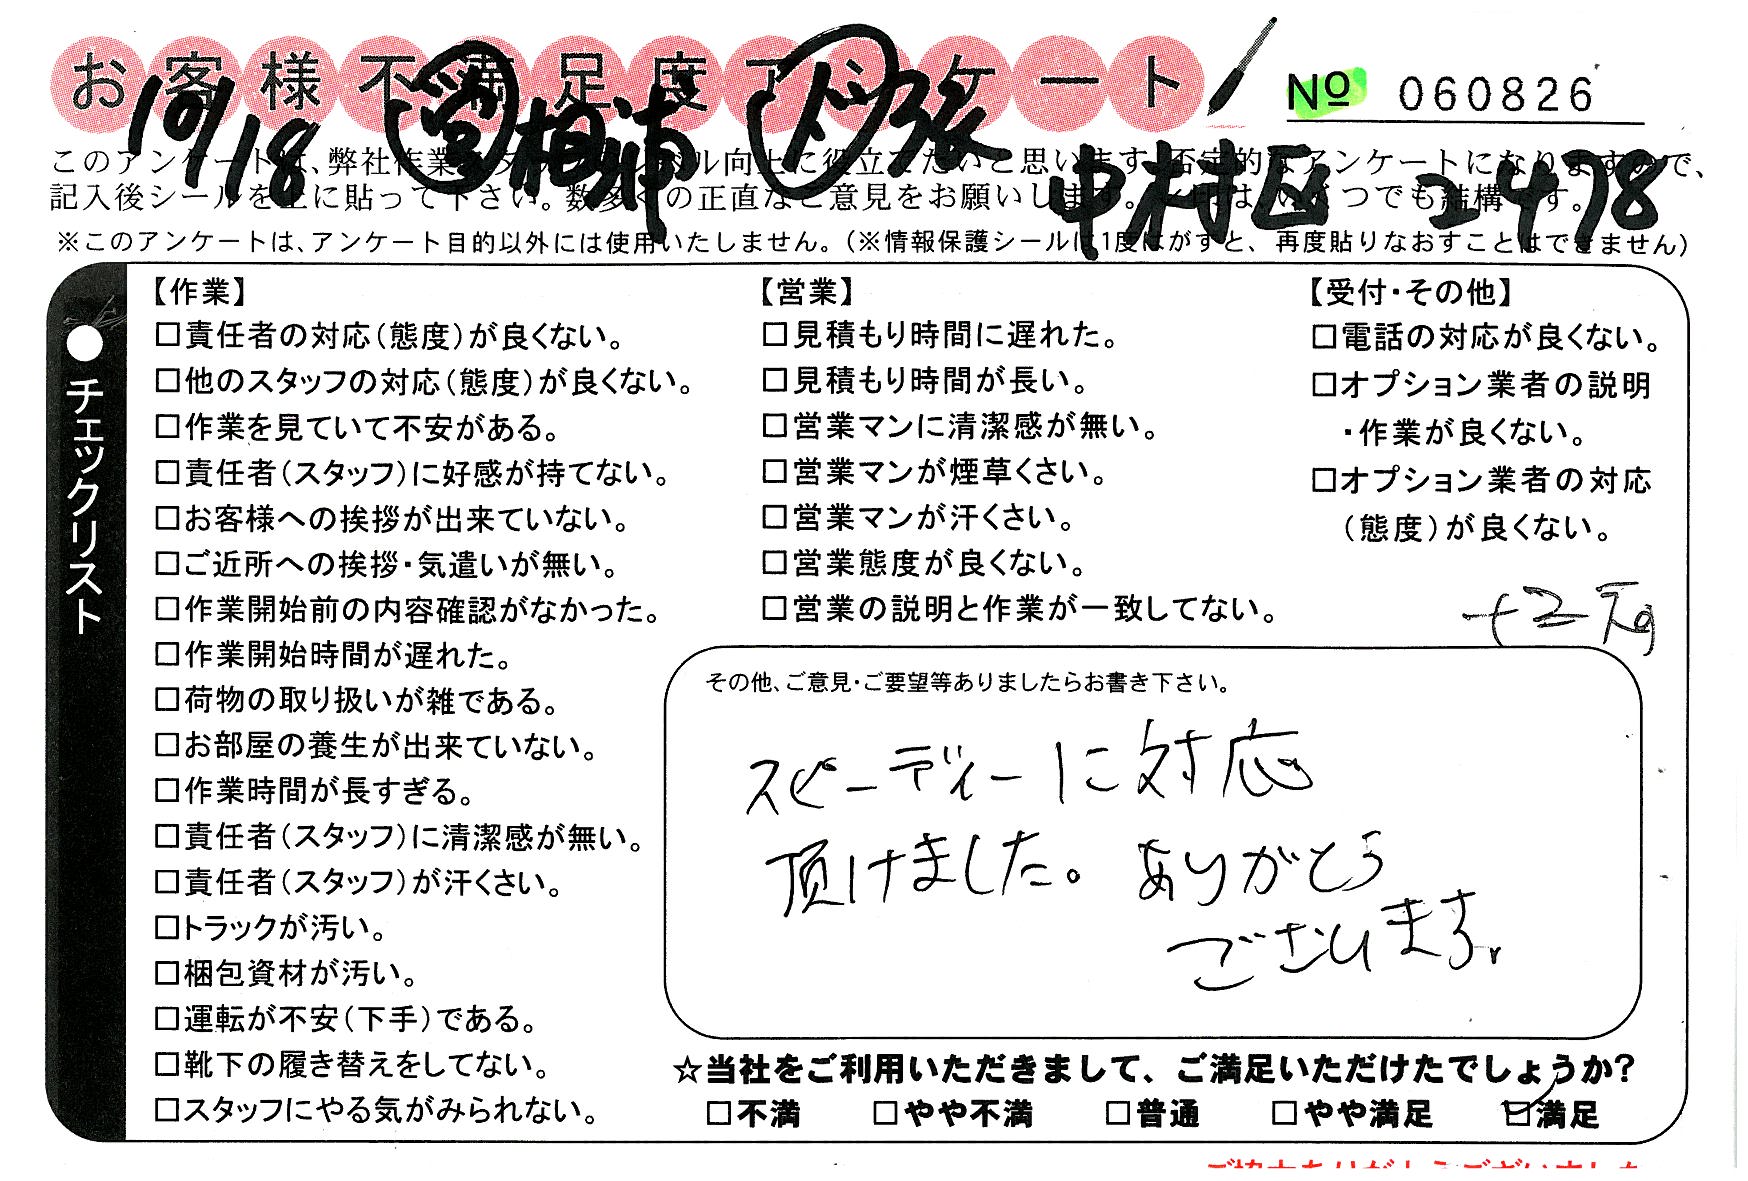 お客様不満足度アンケート
No 060826
10/18 営 相浦 作 張
中村区 2478
このアンケートは、弊社作業スタッフのレベル向上に役立てたいと思います。否定的なアンケートになりますので、
記入後シールを上に貼って下さい。数多くの正直なご意見をお願いします。
※このアンケートは、アンケート目的以外には使用いたしません。(※情報保護シールは1度はがすと、再度貼りなおすことはできません)
●チェックリスト
【作業】
□責任者の対応(態度)が良くない。
□他のスタッフの対応(態度)が良くない。
□作業を見ていて不安がある。
□責任者(スタッフ)に好感が持てない。
□お客様への挨拶が出来ていない。
□ご近所への挨拶・気遣いが無い。
□作業開始前の内容確認がなかった。
□作業開始時間が遅れた。
□荷物の取り扱いが雑である。
□お部屋の養生が出来ていない。
□作業時間が長すぎる。
□責任者(スタッフ)に清潔感が無い。
□責任者(スタッフ)が汗くさい。
□トラックが汚い。
□梱包資材が汚い。
□運転が不安(下手)である。
□靴下の履き替えをしてない。
□スタッフにやる気がみられない。
【営業】
□見積もり時間に遅れた。
□見積もり時間が長い。
□営業マンに清潔感が無い。
□営業マンが煙草くさい。
□営業マンが汗くさい。
□営業態度が良くない。
□営業の説明と作業が一致してない。
【受付・その他】
□電話の対応が良くない。
□オプション業者の説明
・作業が良くない。
□オプション業者の対応
(態度)が良くない。
その他、ご意見・ご要望等ありましたらお書き下さい。
スピーディーに対応
頂けました。ありがとう
ございます。
☆当社をご利用いただきまして、ご満足いただけたでしょうか?
□不満 □やや不満 □普通 □やや満足 ☑満足
ご協力ありがとうございました